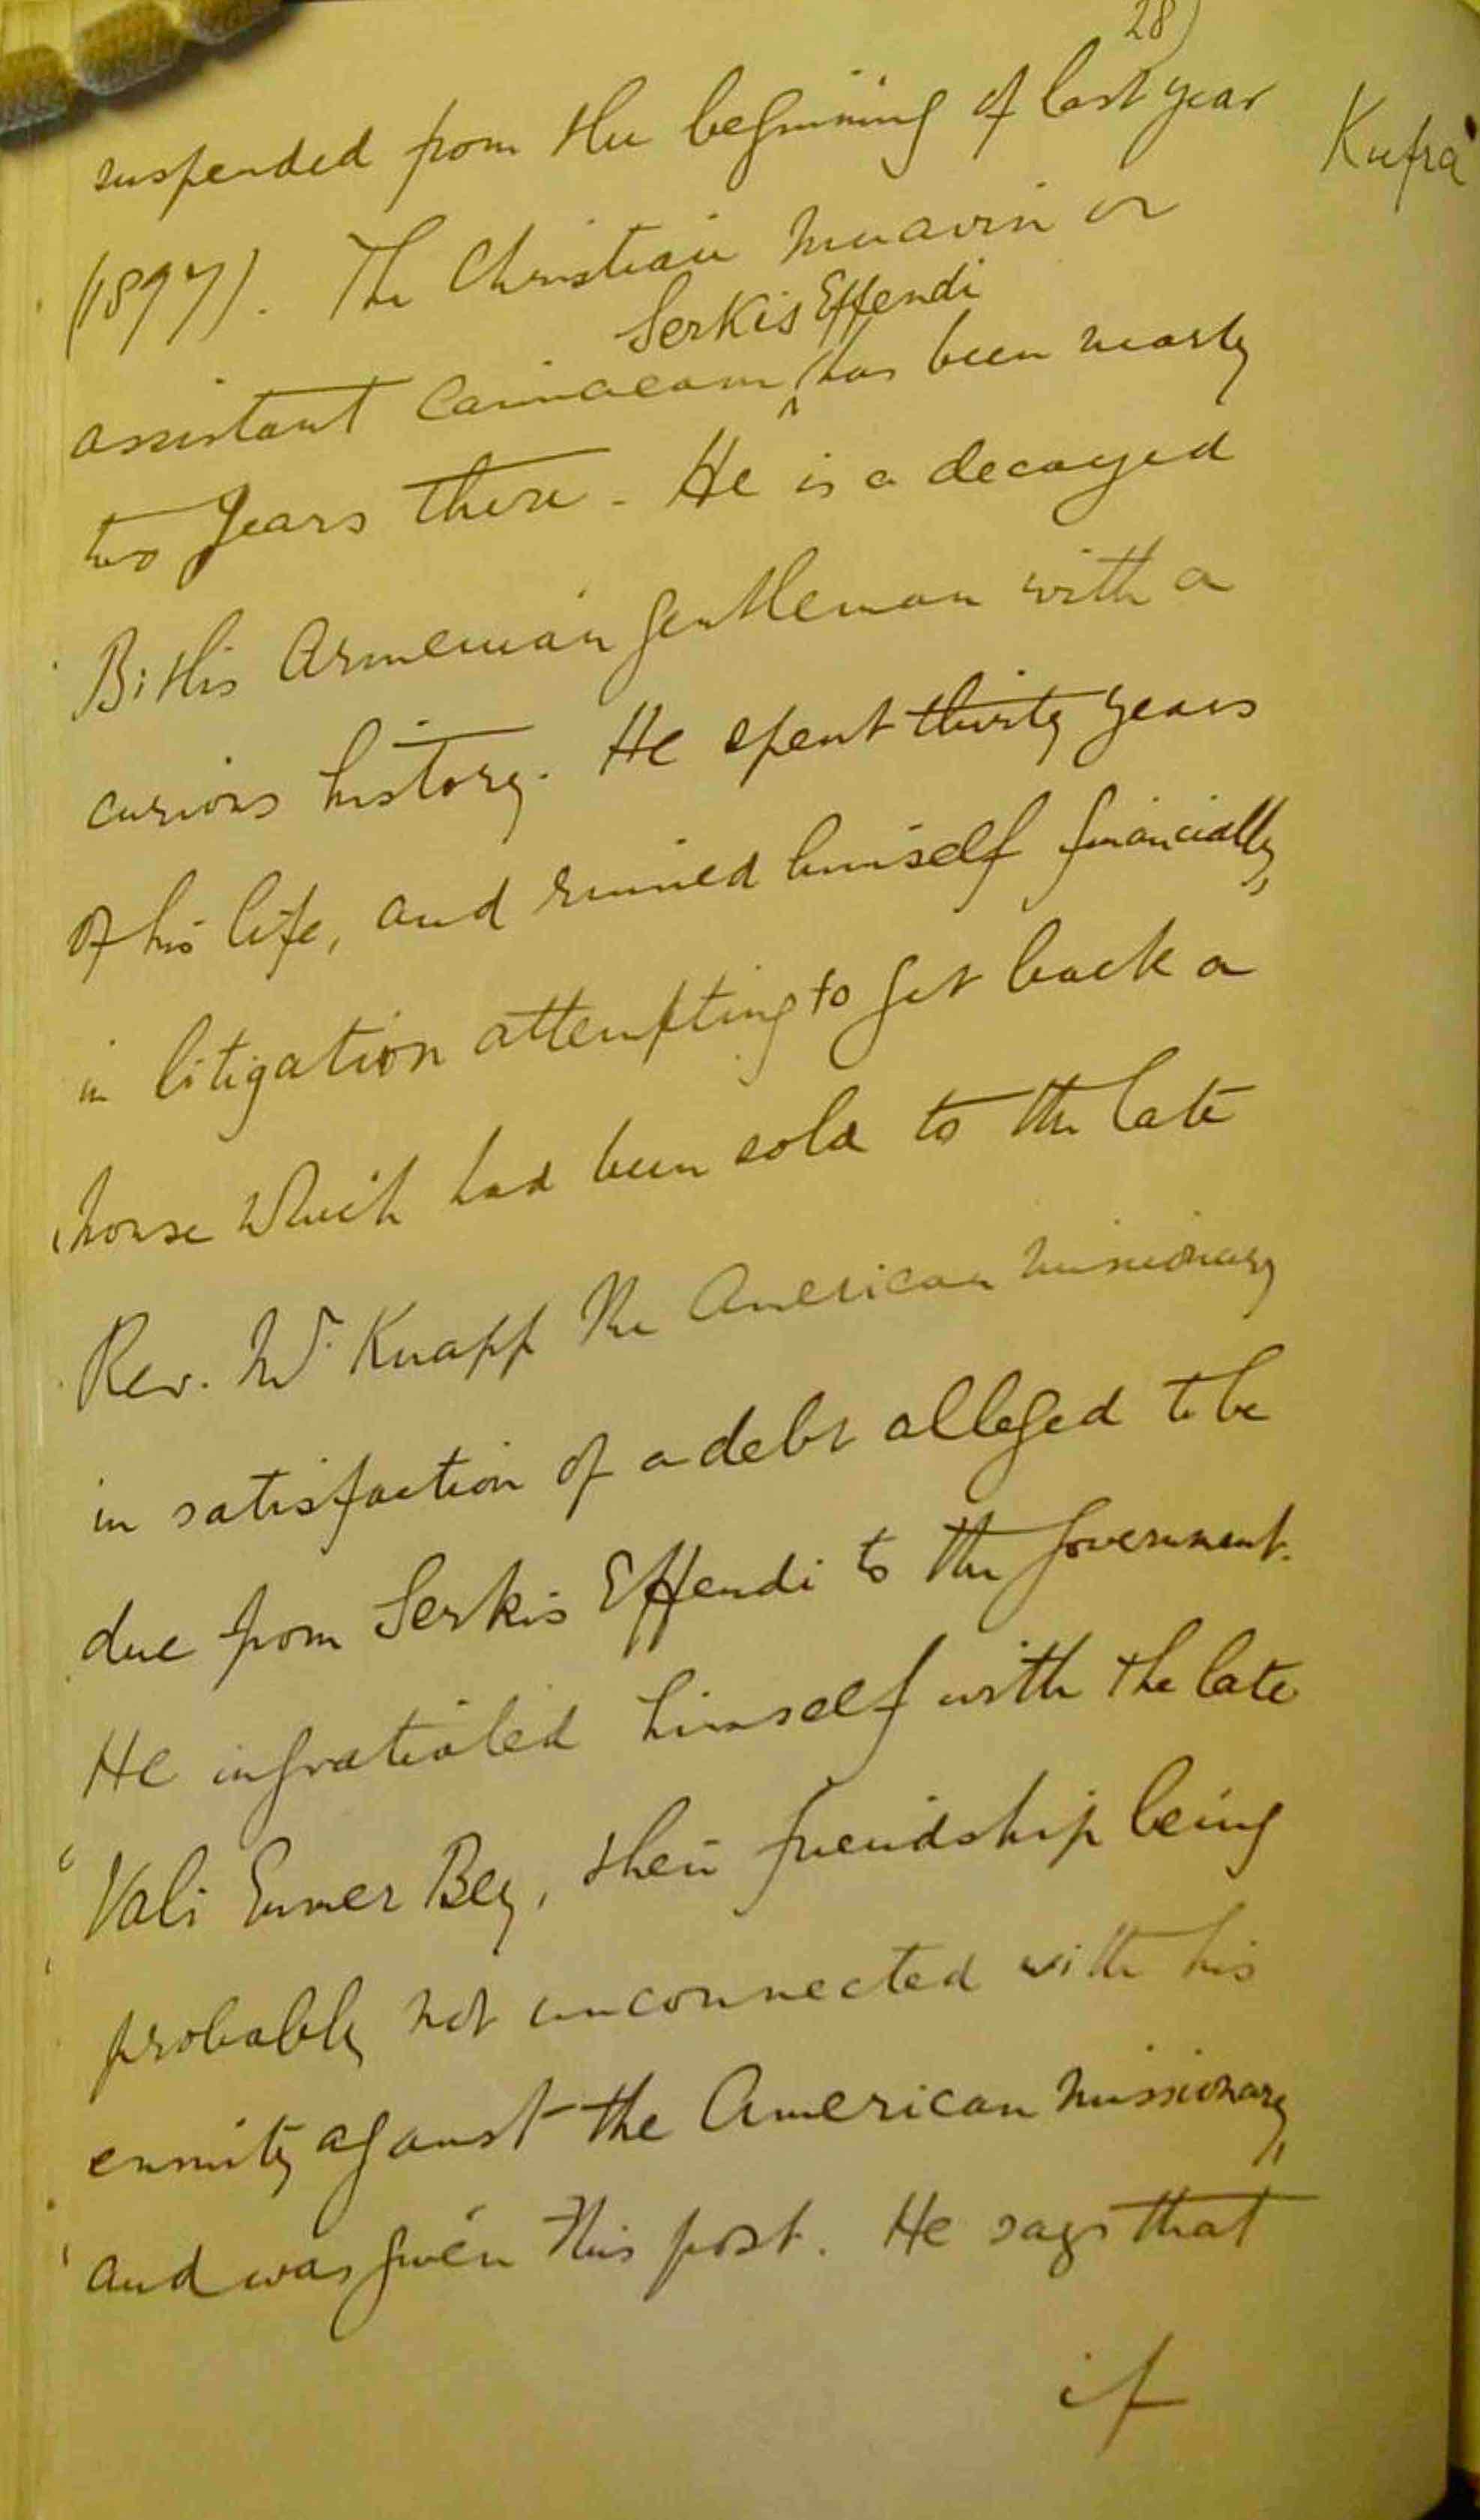 28)
Kufra
suspended from the beginning of last year
(1897). The Christian Muavin or
Serkis Effendi
assistant Caimacam ^ has been nearly
two years there. He is a decayed
Bitlis Armenian gentleman with a
curious history. He spent thirty years
of his life, and ruined himself financially,
in litigation attempting to get back a
house which had been sold to the late
Rev. Mr. Knapp the American missionary
in satisfaction of a debt alleged to be
due from Serkis Effendi to the Government.
He ingratiated himself with the late
Vali Eumer Bey, their friendship being
probably not unconnected with his
enmity against the American missionary,
and was given this post. He says that
if